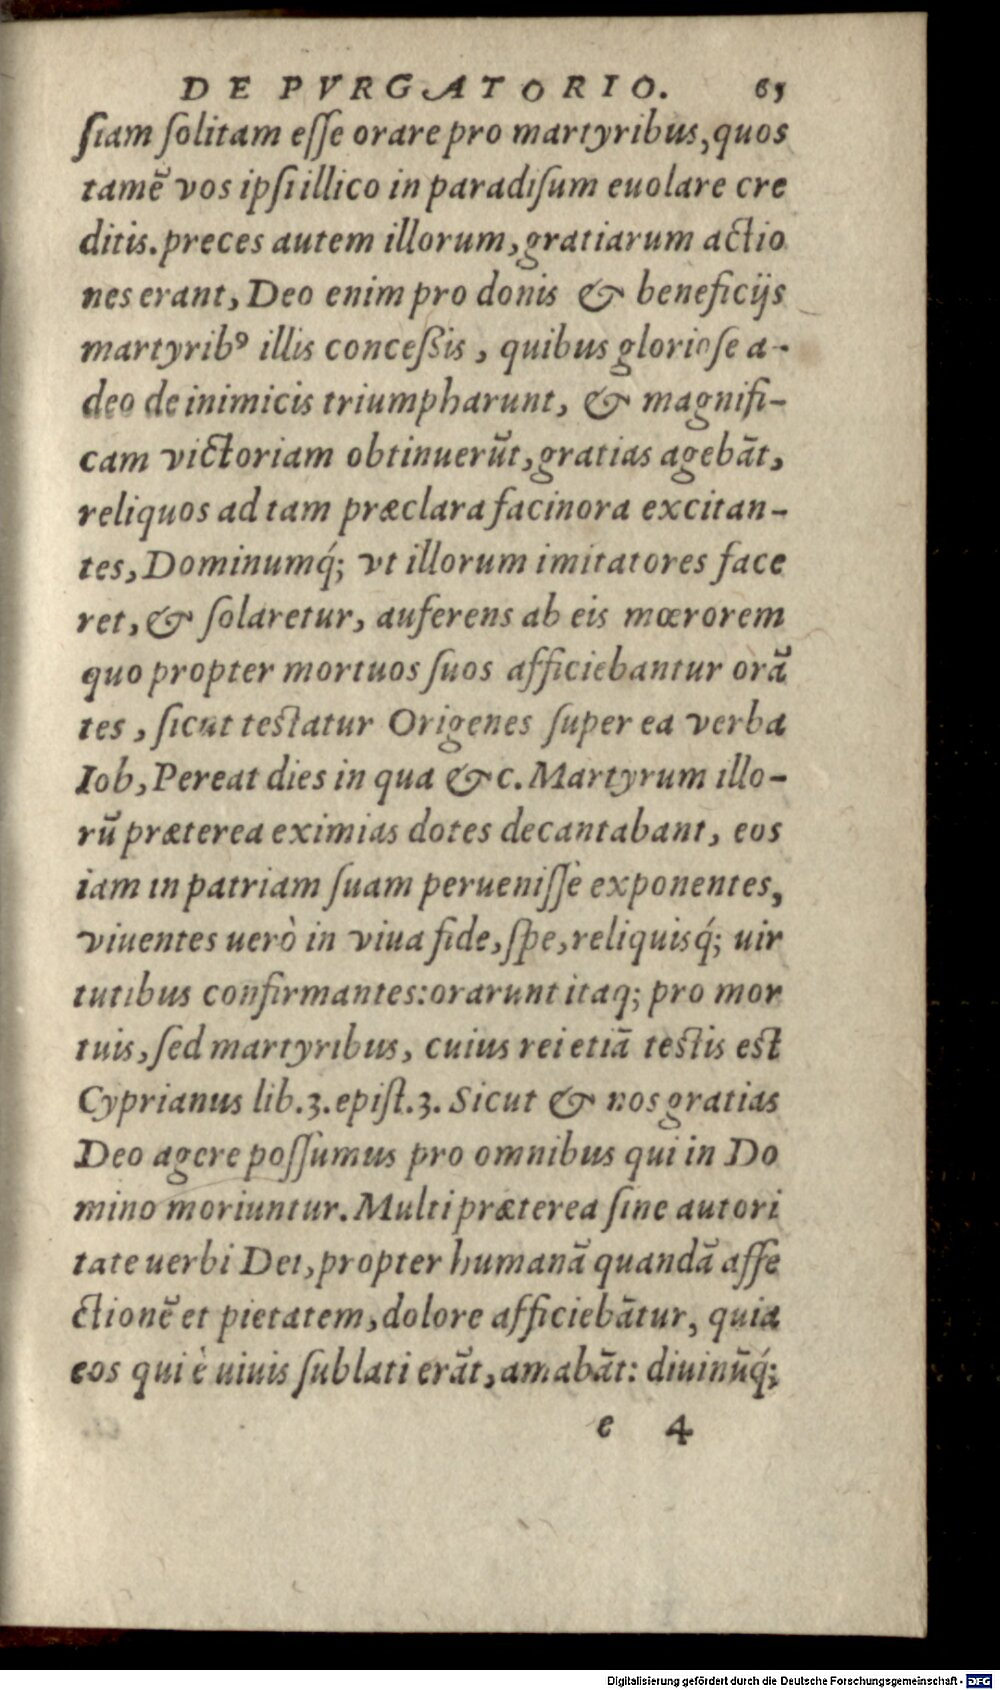 DE PVRGATORIO. 65
ſiam ſolitam eſſe orare pro martyribus, quos
tamē vos ipſi illico in paradiſum euolare cre
ditis. preces autem illorum, gratiarum actio
nes erant, Deo enim pro donis & beneficijs
martyribꝰ illis conceßis, quibus glorioſe a-
deo de inimicis triumpharunt, & magnifi-
cam victoriam obtinuerūt, gratias agebāt,
reliquos ad tam præclara facinora excitan-
tes, Dominumq́; vt illorum imitatores face
ret, & ſolaretur, auferens ab eis mœrorem
quo propter mortuos ſuos afficiebantur orā
tes, ſicut teſtatur Origenes ſuper ea verba
Iob, Pereat dies in qua &c. Martyrum illo-
rū præterea eximias dotes decantabant, eos
iam in patriam ſuam perueniſſe exponentes,
viuentes uerò in viua fide, ſpe, reliquisq́; uir
tutibus confirmantes: orarunt itaq; pro mor
tuis, ſed martyribus, cuius rei etiā teſtis eſt
Cyprianus lib. 3. epiſt. 3. Sicut & nos gratias
Deo agere poſſumus pro omnibus qui in Do
mino moriuntur. Multi præterea ſine autori
tate uerbi Dei, propter humanā quandā affe
ctionē et pietatem, dolore afficiebātur, quia
eos qui è uiuis ſublati erāt, amabāt: diuinūq́;
e 4
Digitalisierung gefördert durch die Deutsche Forschungsgemeinschaft - DFG